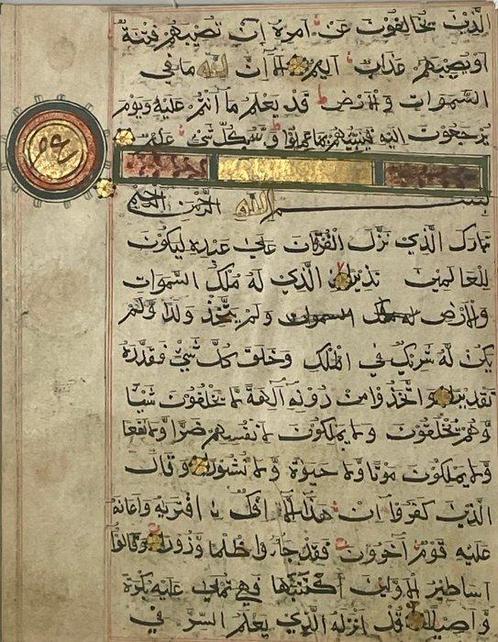 الَّذِينَ يُخَالِفُونَ عَنْ أَمْرِهِ أَنْ تُصِيبَهُمْ فِتْنَةٌ
أَوْ يُصِيبَهُمْ عَذَابٌ أَلِيمٌ أَلَا إِنَّ لِلَّهِ مَا فِي
السَّمَوَاتِ وَالْأَرْضِ قَدْ يَعْلَمُ مَا أَنْتُمْ عَلَيْهِ وَيَوْمَ
يُرْجَعُونَ إِلَيْهِ فَيُنَبِّئُهُمْ بِمَا عَمِلُوا وَاللَّهُ بِكُلِّ شَيْءٍ عَلِيمٌ
بِسْمِ اللَّهِ الرَّحْمَنِ الرَّحِيمِ
تَبَارَكَ الَّذِي نَزَّلَ الْفُرْقَانَ عَلَى عَبْدِهِ لِيَكُونَ
لِلْعَالَمِينَ نَذِيرًا الَّذِي لَهُ مُلْكُ السَّمَوَاتِ
وَالْأَرْضِ وَلَمْ يَتَّخِذْ وَلَدًا وَلَمْ
يَكُنْ لَهُ شَرِيكٌ فِي الْمُلْكِ وَخَلَقَ كُلَّ شَيْءٍ فَقَدَّرَهُ
تَقْدِيرًا وَاتَّخَذُوا مِنْ دُونِهِ آلِهَةً لَا يَخْلُقُونَ شَيْئًا
وَهُمْ يُخْلَقُونَ وَلَا يَمْلِكُونَ لِأَنْفُسِهِمْ ضَرًّا وَلَا نَفْعًا
وَلَا يَمْلِكُونَ مَوْتًا وَلَا حَيَوةً وَلَا نُشُورًا وَقَالَ
الَّذِينَ كَفَرُوا إِنْ هَذَا إِلَّا إِفْكٌ افْتَرَيهُ وَأَعَانَهُ
عَلَيْهِ قَوْمٌ آخَرُونَ فَقَدْ جَاءُو ظُلْمًا وَزُورًا وَقَالُوا
أَسَاطِيرُ الْأَوَّلِينَ اكْتَتَبَهَا فَهِيَ تُمْلَى عَلَيْهِ بُكْرَةً
وَأَصِيلًا قُلْ أَنْزَلَهُ الَّذِي يَعْلَمُ السِّرَّ فِي